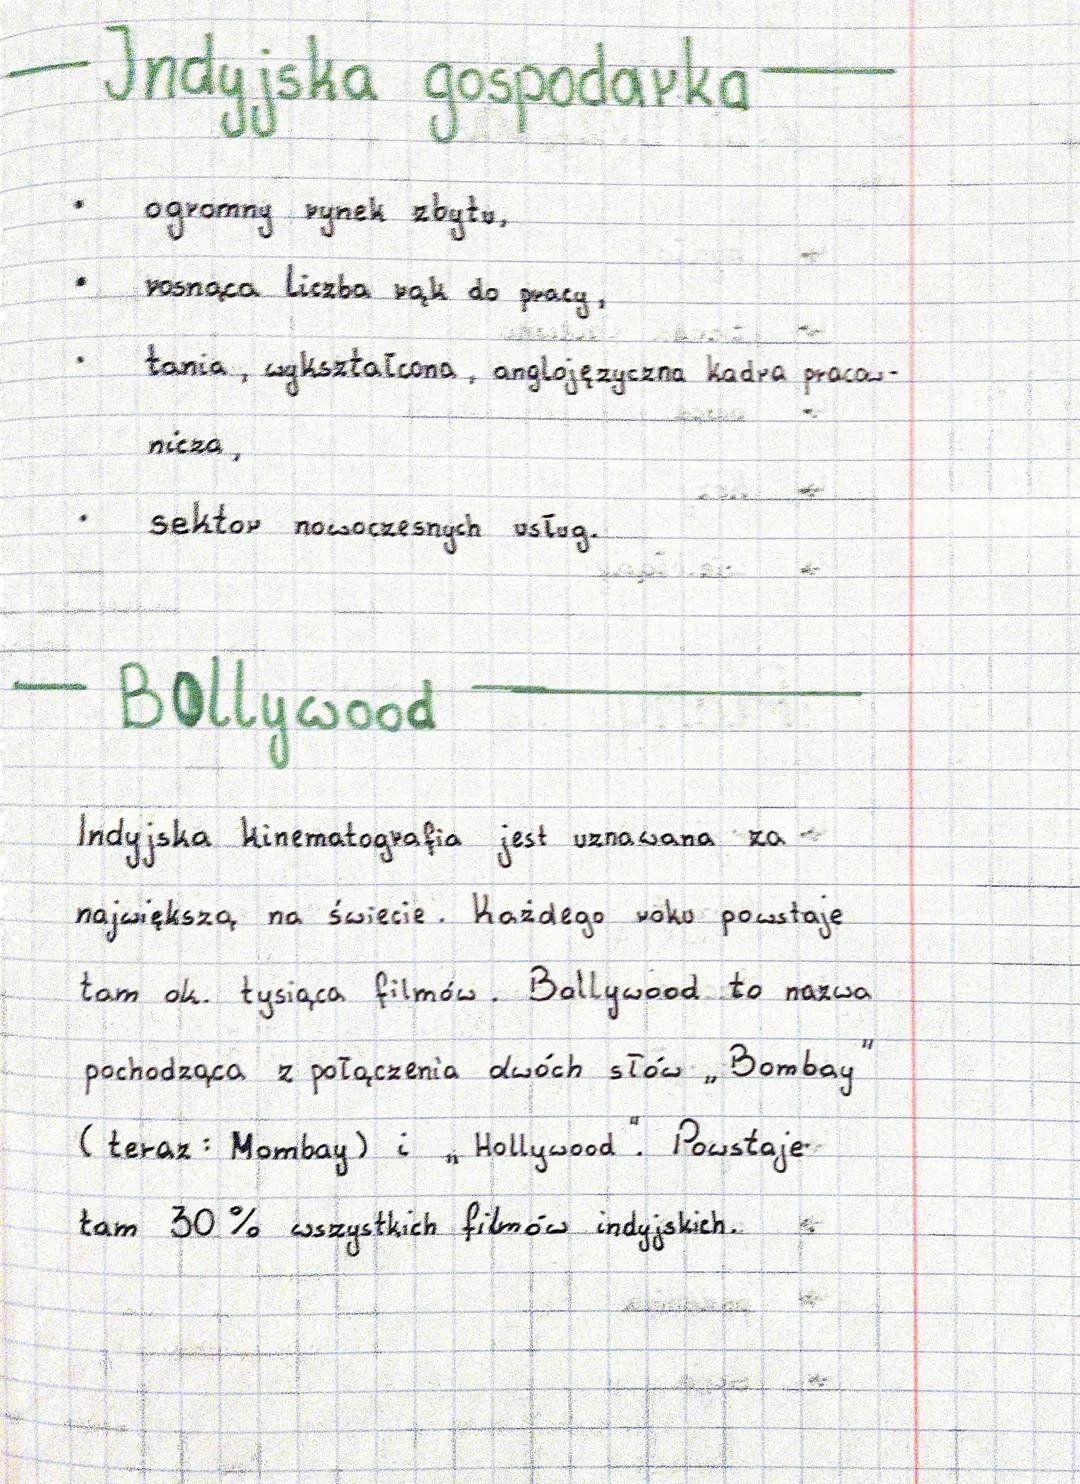 Indyjska gospodarka
• ogromny rynek zbytu,
• rosnąca liczba rąk do pracy,
• tania, wykształcona, anglojęzyczna kadra pracow-
nicza,
• sektor nowoczesnych usług.
Bollywood
Indyjska kinematografia jest uznawana za
największą na świecie. Każdego roku powstaje
tam ok. tysiąca filmów. Bollywood to nazwa
pochodząca z połączenia dwóch słów „Bombay"
(teraz: Mombay) i „Hollywood". Powstaje
tam 30% wszystkich filmów indyjskich.